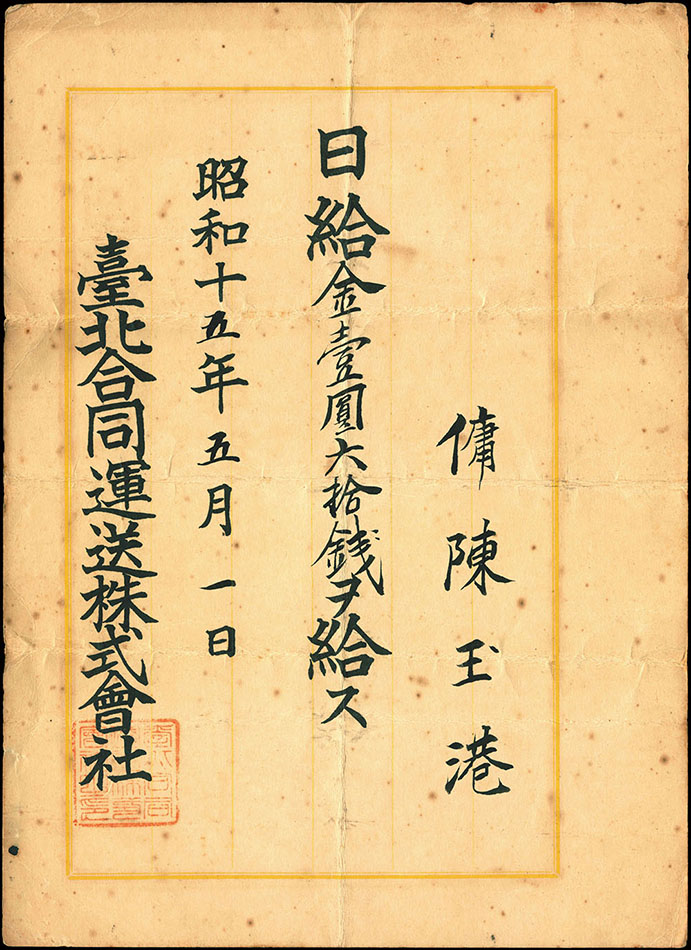 傭 陳玉港
日給金壹圓六拾銭ヲ給ス
昭和十五年五月一日
臺北合同運送株式會社